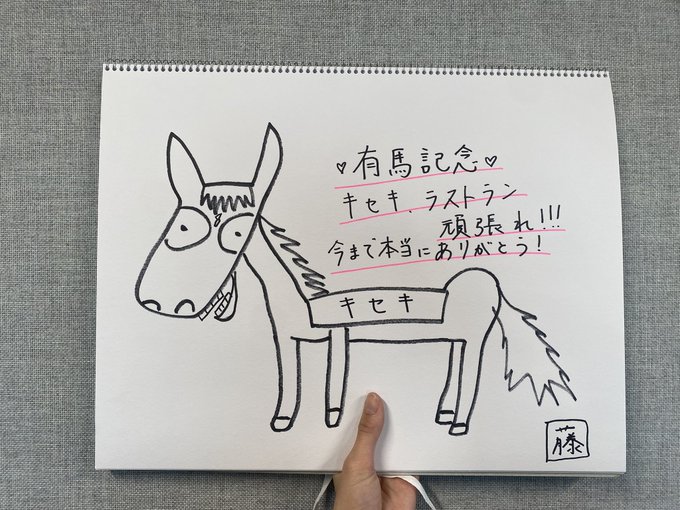 ♡有馬記念♡
キセキ、ラストラン
頑張れ!!!
今まで本当にありがとう!
キセキ
藤